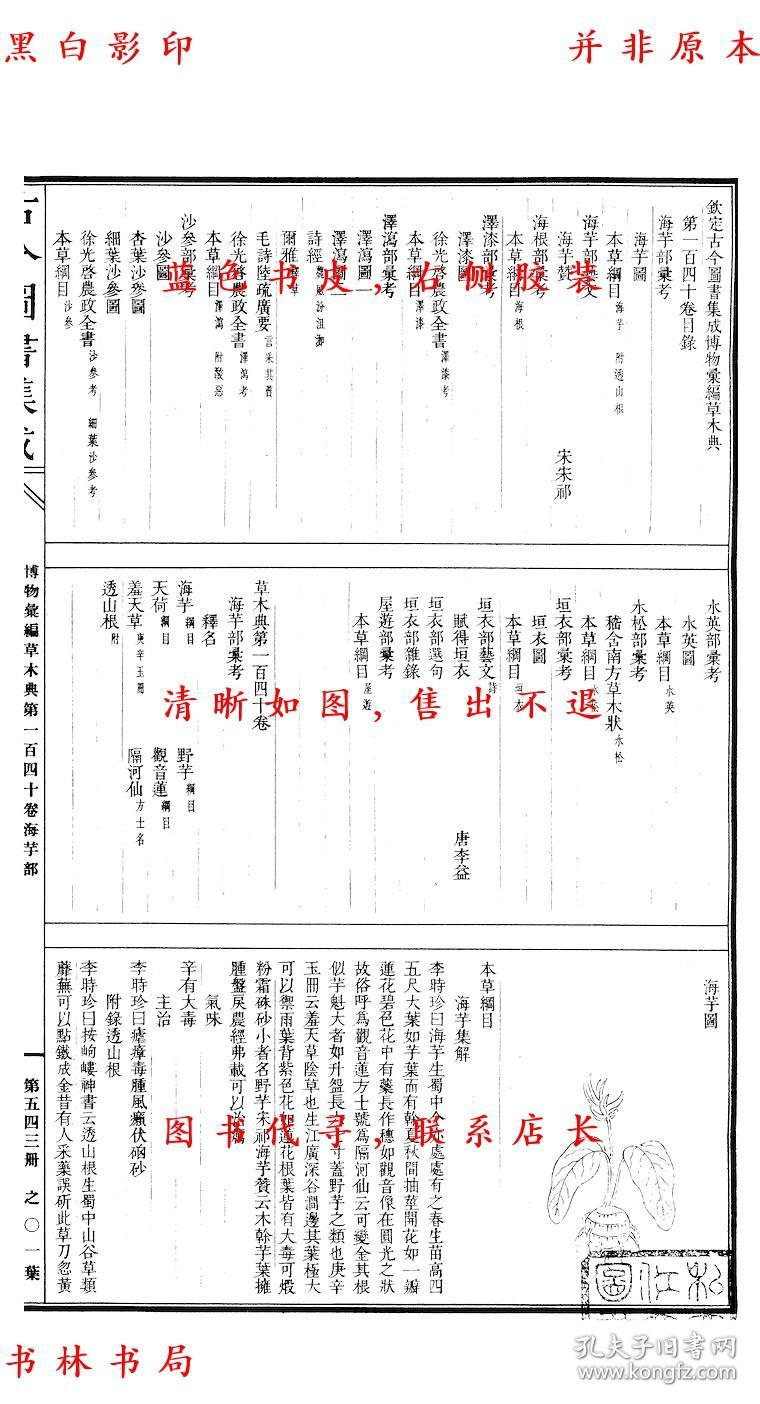 黑白影印
并非原本
欽定古今圖書集成博物彙編草木典
第一百四十卷目錄
海芋部彙考
海芋圖
本草綱目 海芋 附透山根
海芋部藝文
海芋贊 宋宋祁
海根部彙考
本草綱目 海根
澤漆部彙考
澤漆圖
徐光啓農政全書 澤漆考
本草綱目 澤漆
澤瀉部彙考
澤瀉圖一
澤瀉圖二
詩經 魏風汾沮洳
爾雅 釋草
毛詩陸疏廣要 言采其藚
徐光啓農政全書 澤瀉考
本草綱目 澤瀉 附酸惡
沙參部彙考
沙參圖
杏葉沙參圖
細葉沙參圖
徐光啓農政全書 沙參考 細葉沙參考
本草綱目 沙參
古今圖書集成
水英部彙考
水英圖
本草綱目 水英
水松部彙考
嵇含南方草木狀 水松
本草綱目 水松
垣衣部彙考
垣衣圖
本草綱目 垣衣
垣衣部藝文 詩
賦得垣衣 唐李益
垣衣部選句
垣衣部雜錄
屋遊部彙考
本草綱目 屋遊
草木典第一百四十卷
海芋部彙考
釋名
海芋 綱目 野芋 綱目
天荷 綱目 觀音蓮 綱目
羞天草 庚辛玉冊 隔河仙 方士名
透山根 附
博物彙編草木典第一百四十卷海芋部
海芋圖
本草綱目
海芋集解
李時珍曰海芋生蜀中今亦處處有之春生苗高四
五尺大葉如芋葉而有幹夏秋間抽莖開花如一瓣
蓮花碧色花中有蕊長作穗如觀音像在圓光之狀
故俗呼爲觀音蓮方士號爲隔河仙云可變金其根
似芋魁大者如升盌長六七寸蓋野芋之類也庚辛
玉冊云羞天草陰草也生江廣深谷澗邊其葉極大
可以禦雨葉背紫色花如蓮花根葉皆有大毒可煅
粉霜硃砂小者名野芋宋祁海芋贊云木幹芋葉擁
腫盤戾農經弗載可以治癘
氣味
辛有大毒
主治
李時珍曰瘧瘴毒腫風癩伏硇砂
附錄透山根
李時珍曰按岣嶁神書云透山根生蜀中山谷草類
蘼蕪可以點鐵成金昔有人采藥誤斫此草刀忽黃
第五四三册 之〇一葉
蓝色书皮，右侧胶装
清晰如图，售出不退
图书代寻，联系店长
书林书局
孔夫子旧书网
www.kongfz.com